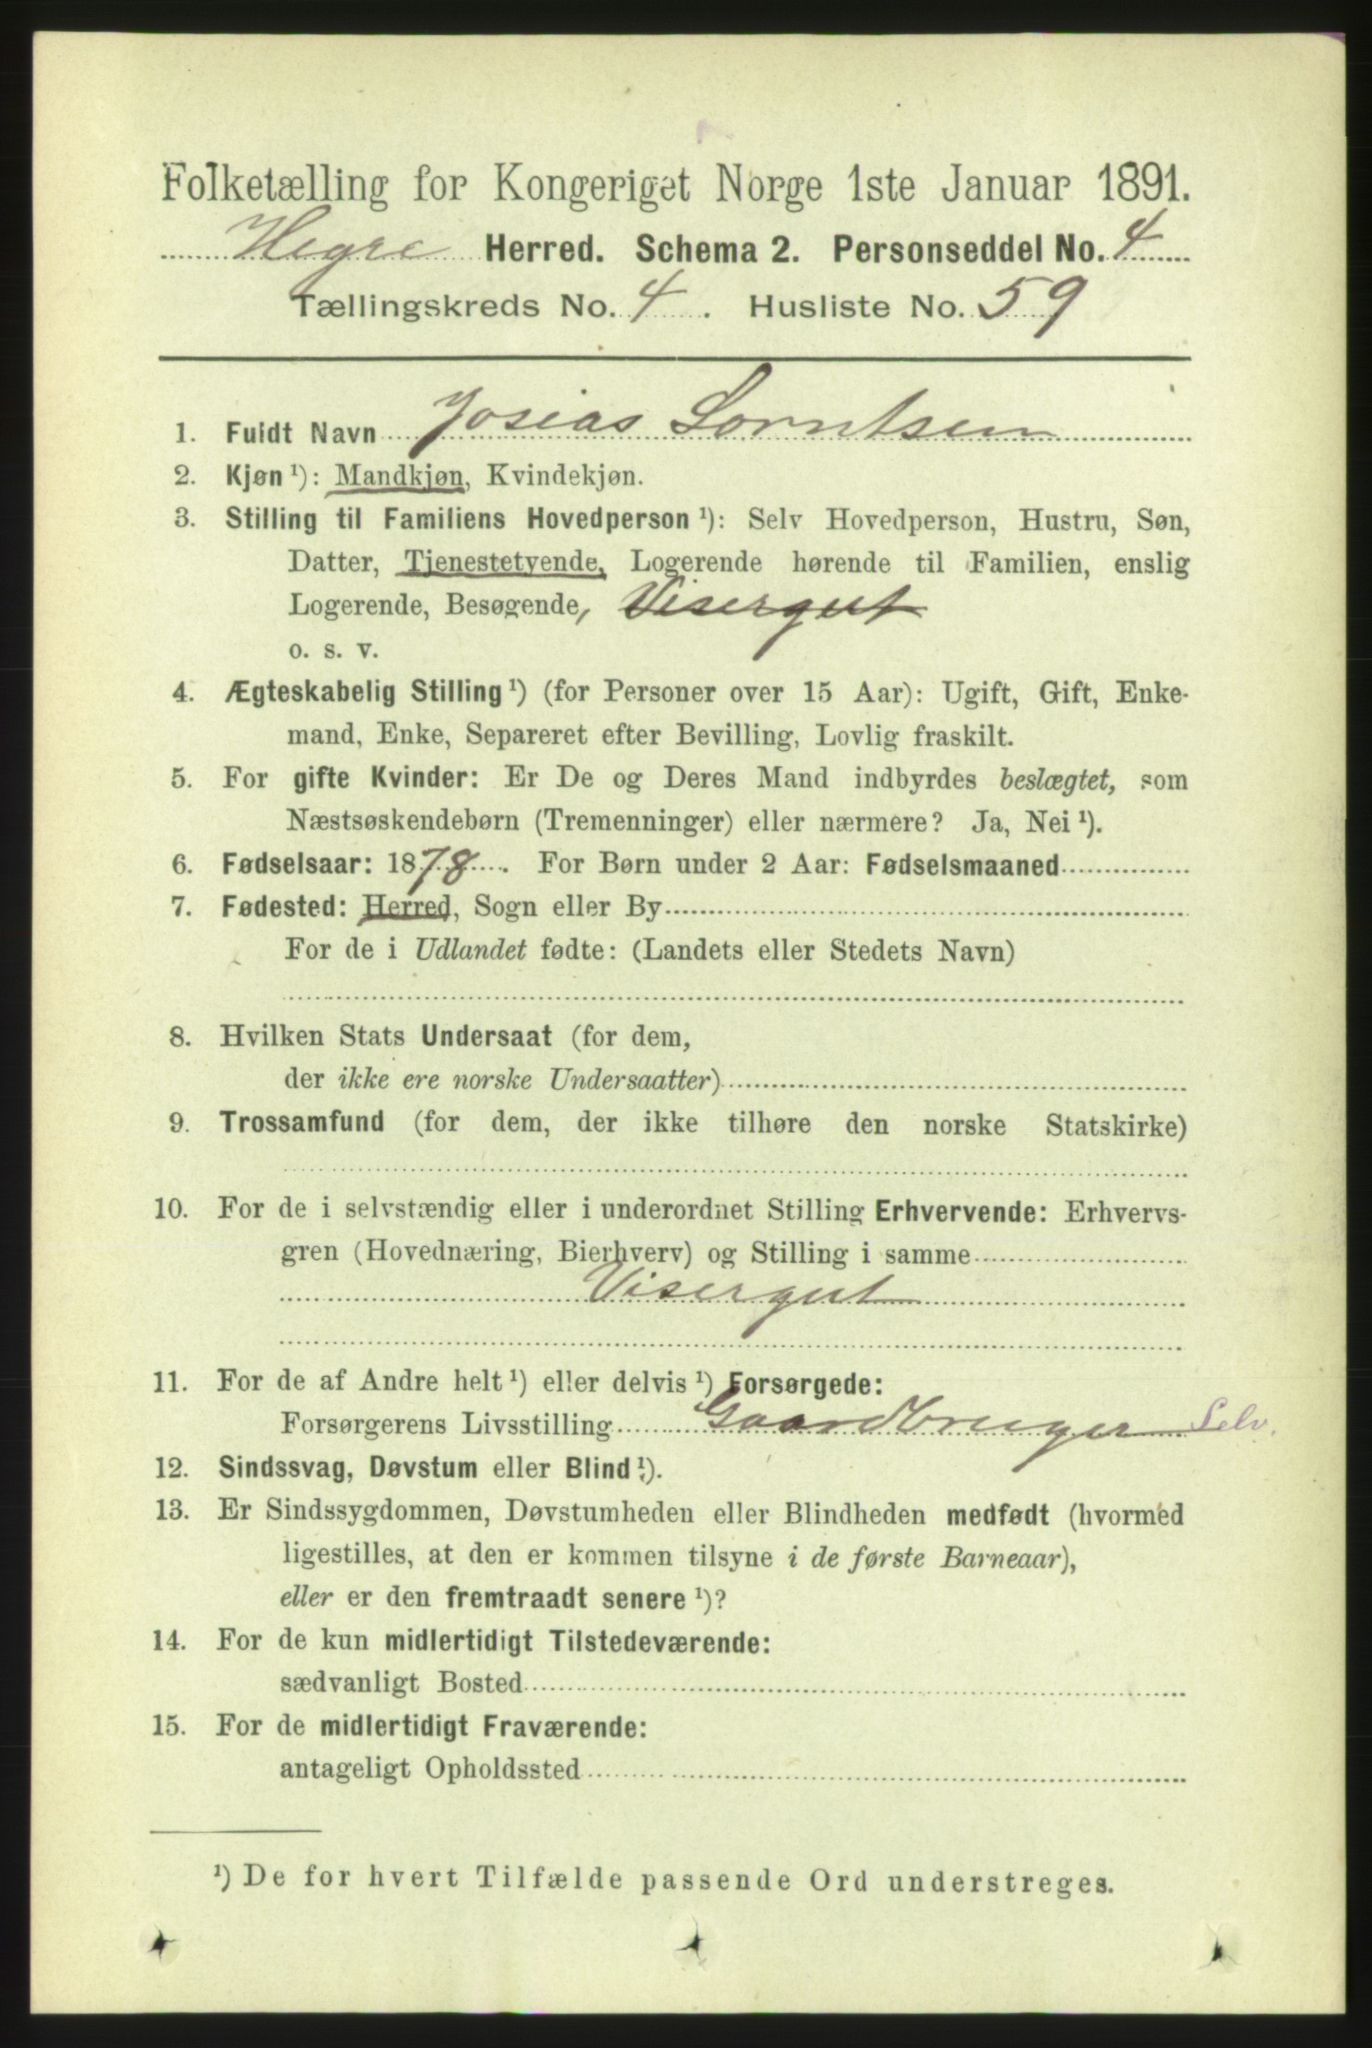 Folketælling for Kongeriget Norge 1ste Januar 1891.
Hegre Herred. Schema 2. Personseddel No. 4
Tællingskreds No. 4. Husliste No. 59
1. Fuldt Navn Josias Lorntsen
2. Kjøn ¹): Mandkjøn, Kvindekjøn.
3. Stilling til Familiens Hovedperson ¹): Selv Hovedperson, Hustru, Søn,
Datter, Tjenestetyende, Logerende hørende til Familien, enslig
Logerende, Besøgende, Visergut
o. s. v.
4. Ægteskabelig Stilling ¹) (for Personer over 15 Aar): Ugift, Gift, Enke-
mand, Enke, Separeret efter Bevilling, Lovlig fraskilt.
5. For gifte Kvinder: Er De og Deres Mand indbyrdes beslægtet, som
Næstsøskendebørn (Tremenninger) eller nærmere? Ja, Nei ¹).
6. Fødselsaar: 1878. For Børn under 2 Aar: Fødselsmaaned
7. Fødested: Herred, Sogn eller By
For de i Udlandet fødte: (Landets eller Stedets Navn)
8. Hvilken Stats Undersaat (for dem,
der ikke ere norske Undersaatter)
9. Trossamfund (for dem, der ikke tilhøre den norske Statskirke)
10. For de i selvstændig eller i underordnet Stilling Erhvervende: Erhvervs-
gren (Hovednæring, Bierhverv) og Stilling i samme
Visergut
11. For de af Andre helt ¹) eller delvis ¹) Forsørgede:
Forsørgerens Livsstilling Gaardbruger Selv.
12. Sindssvag, Døvstum eller Blind ¹).
13. Er Sindssygdommen, Døvstumheden eller Blindheden medfødt (hvormed
ligestilles, at den er kommen tilsyne i de første Barneaar),
eller er den fremtraadt senere ¹)?
14. For de kun midlertidigt Tilstedeværende:
sædvanligt Bosted
15. For de midlertidigt Fraværende:
antageligt Opholdssted
¹) De for hvert Tilfælde passende Ord understreges.